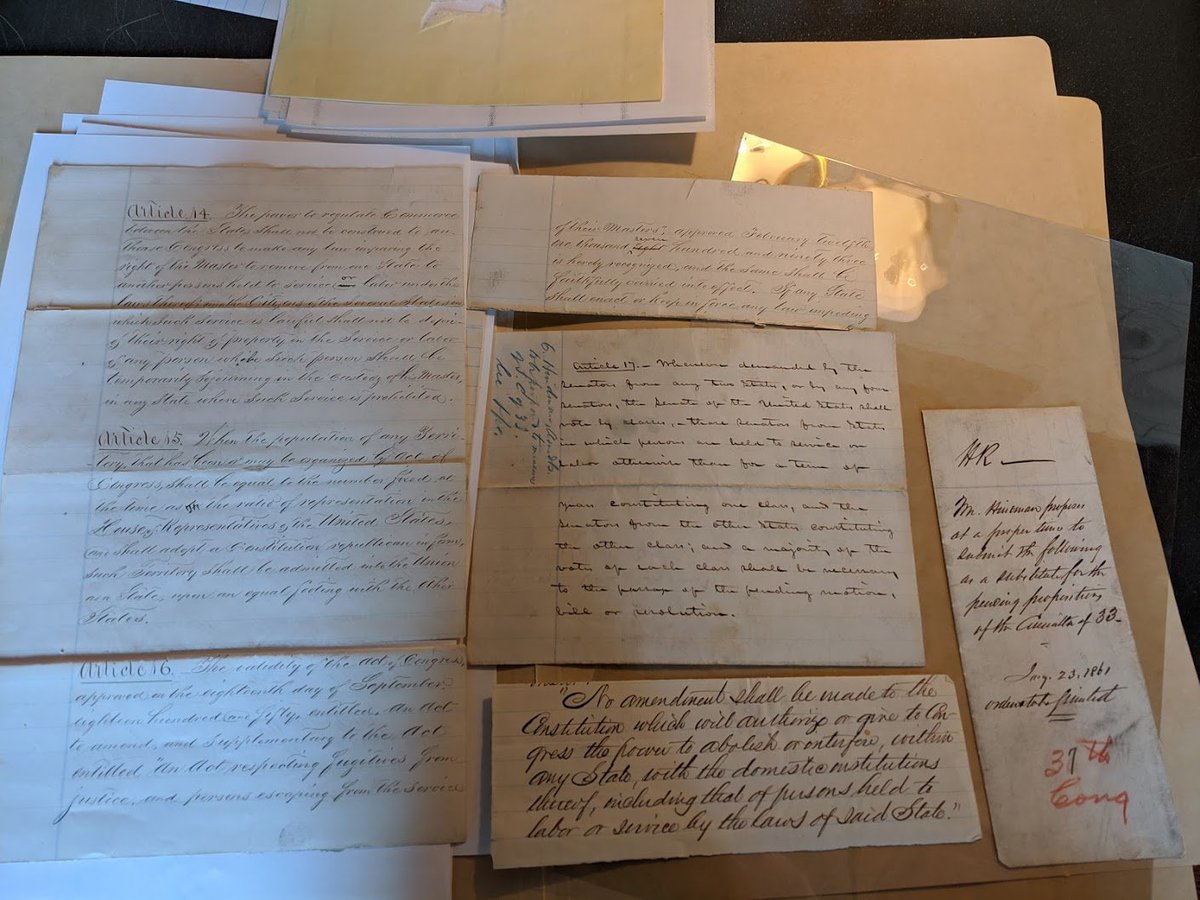 Article 14. The power to regulate Commerce
between the States shall not be construed to au-
thorise Congress to make any law impairing the
right of the Master to remove from one State to
another persons held to service or labor under the
laws thereof, and the Citizens of the second State in
which such service is lawful shall not be depriv-
of their right of property in the service or labor
of any person when such person should be
temporarily sojourning in the custody of his Master,
in any State where such service is prohibited.
Article 15. When the population of any Terri-
tory, that has been or may be organized by Act of
Congress, shall be equal to the number fixed at
the time as the ratio of representation in the
House of Representatives of the United States,
and shall adopt a Constitution republican in form,
such Territory shall be admitted into the Union
as a State, upon an equal footing with the other
States.
Article 16. The validity of the Act of Congress,
approved on the eighteenth day of September
eighteen hundred and fifty, entitled, An Act
to amend, and supplementary to the Act
entitled "An Act respecting fugitives from
justice, and persons escaping from the service
of their Masters", approved February Twelfth
seven
one thousand eight hundred and ninety three
is hereby recognized, and the same shall be
faithfully carried into effect. If any State
shall enact or keep in force any law impeding
Article 17. – Whenever demanded by the
senators from any two States, or by any four
senators, the Senate of the United States shall
vote by classes, – those senators from States
in which persons are held to service or
labor otherwise than for a term of
years constituting one class, and the
senators from the other States constituting
the other class; and a majority of the
votes of each class shall be necessary
to the passage of the pending motion,
bill or resolution.
"No amendment shall be made to the
Constitution which will authorize or give to Con-
gress the power to abolish or interfere, within
any State, with the domestic institutions
thereof, including that of persons held to
labor or service by the laws of said State."
HR —
Mr. proposes
at a proper time to
submit the following
as a substitute for the
pending propositions
of the Committee of 33
Jany. 23, 1861
ordered to be printed
37th
Cong